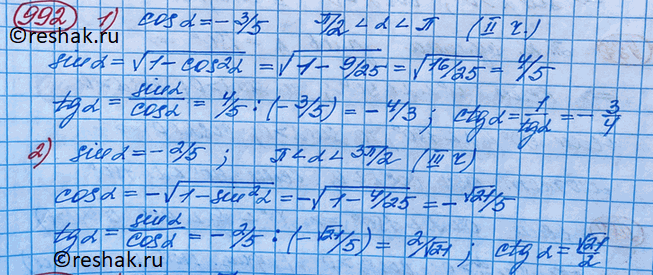 992 1) cos α = -3/5 π/2 < α < π (II ч.)
©reshak.ru
sin α = √(1 - cos²α) = √(1 - 9/25) = √(16/25) = 4/5
tg α = sin α/cos α = 4/5 : (-3/5) = -4/3 ; ctg α = 1/tg α = -3/4
2) sin α = -2/5 ; π < α < 3π/2 (III ч)
cos α = -√(1 - sin²α) = -√(1 - 4/25) = -√21/5
tg α = sin α/cos α = -2/5 : (-√21/5) = 2/√21 ; ctg α = √21/2
©reshak.ru